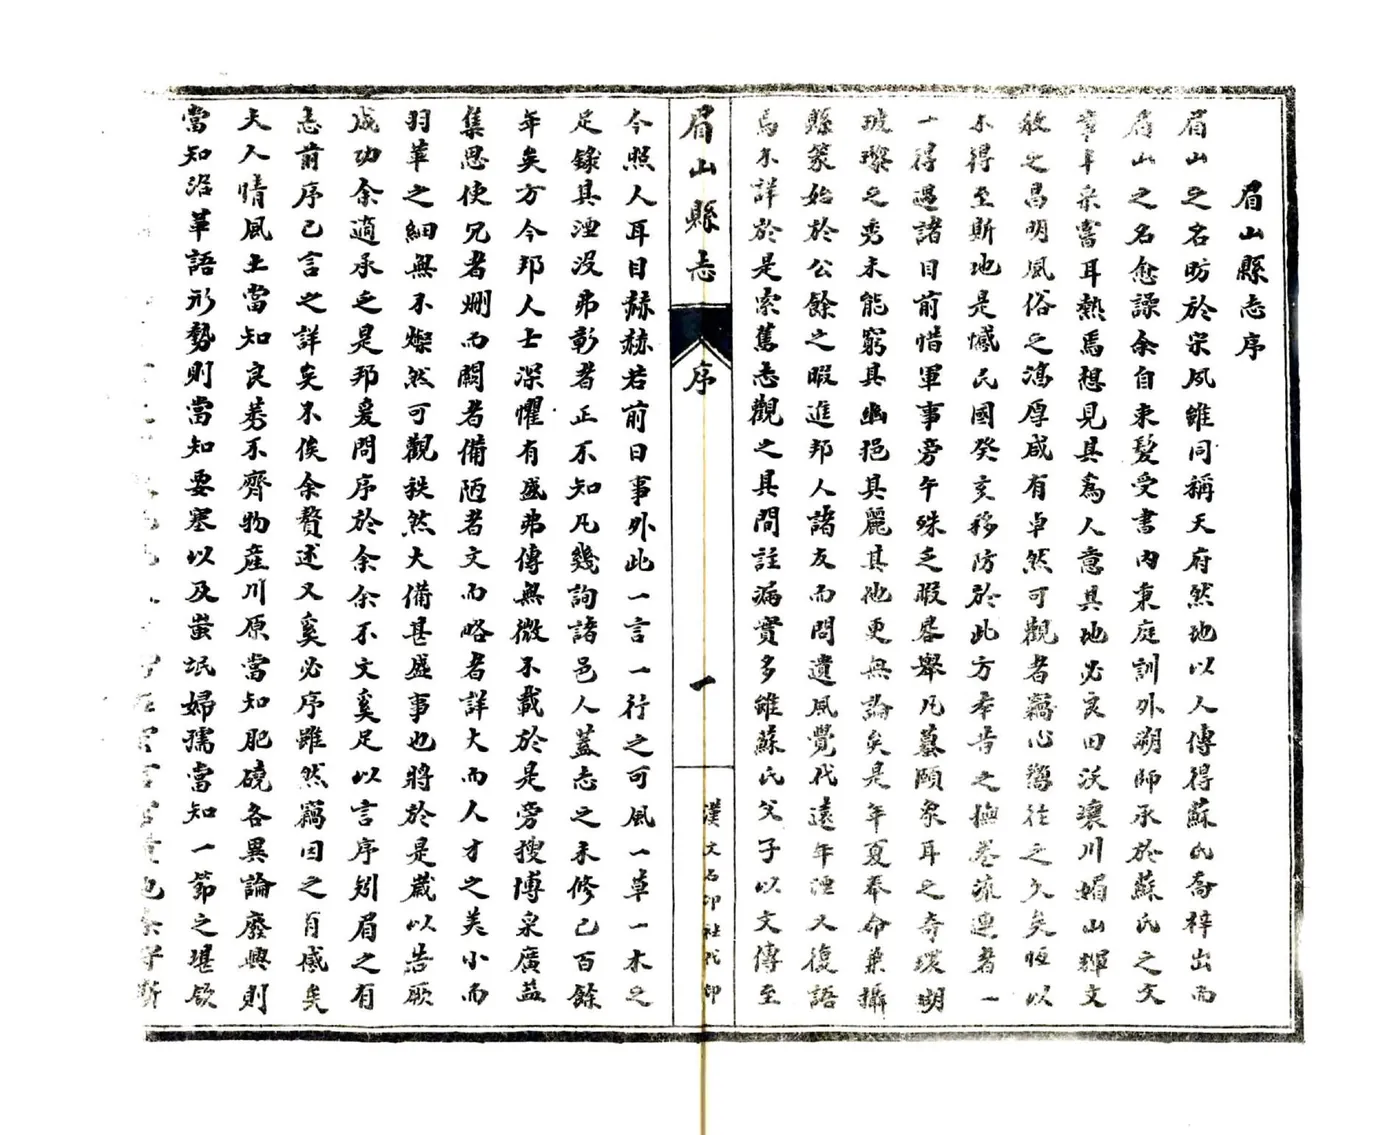 眉山縣志序
眉山之名昉於宋夙雖同稱天府然地以人傳得蘇氏喬梓出而
眉山之名愈譟余自束髮受書內秉庭訓外溯師承於蘇氏之文
章年采嘗耳熱焉想見其為人意其地必良田沃壤川媚山輝文
教之昌明風俗之渟厚咸有卓然可觀者竊心嚮往之久矣恒以
不得至斯地是憾民國癸亥移防於此方幸昔之撫卷流連者一
一得遇諸目前惜軍事旁午殊乏暇晷舉凡蟇頤象耳之奇環湖
玻瓈之秀未能窮其幽挹其麗其他更無論矣是年夏奉命兼攝
縣篆始於公餘之暇進邦人諸友而問遺風覺代遠年湮又復語
焉不詳於是索舊志觀之其間註漏實多雖蘇氏父子以文傳至
眉山縣志
序
一
漢文石印社代印
今照人耳目赫赫若前日事外此一言一行之可風一草一木之
足錄其湮沒弗彰者正不知凡幾詢諸邑人蓋志之未修已百餘
年矣方今邦人士深懼有盛弗傳無微不載於是旁搜博采廣益
集思使冗者刪而闕者備陋者文而略者詳大而人才之美小而
羽革之細無不燦然可觀秩然大備甚盛事也將於是歲以告厥
成功余適承乏是邦爰問序於余余不文奚足以言序矧眉之有
志前序已言之詳矣不俟余贅述又奚必序雖然竊因之有感矣
夫人情風土當知良莠不齊物產川原當知肥磽各異論廢興則
當知沿革語形勢則當知要塞以及蚩氓婦孺當知一節之堪欽